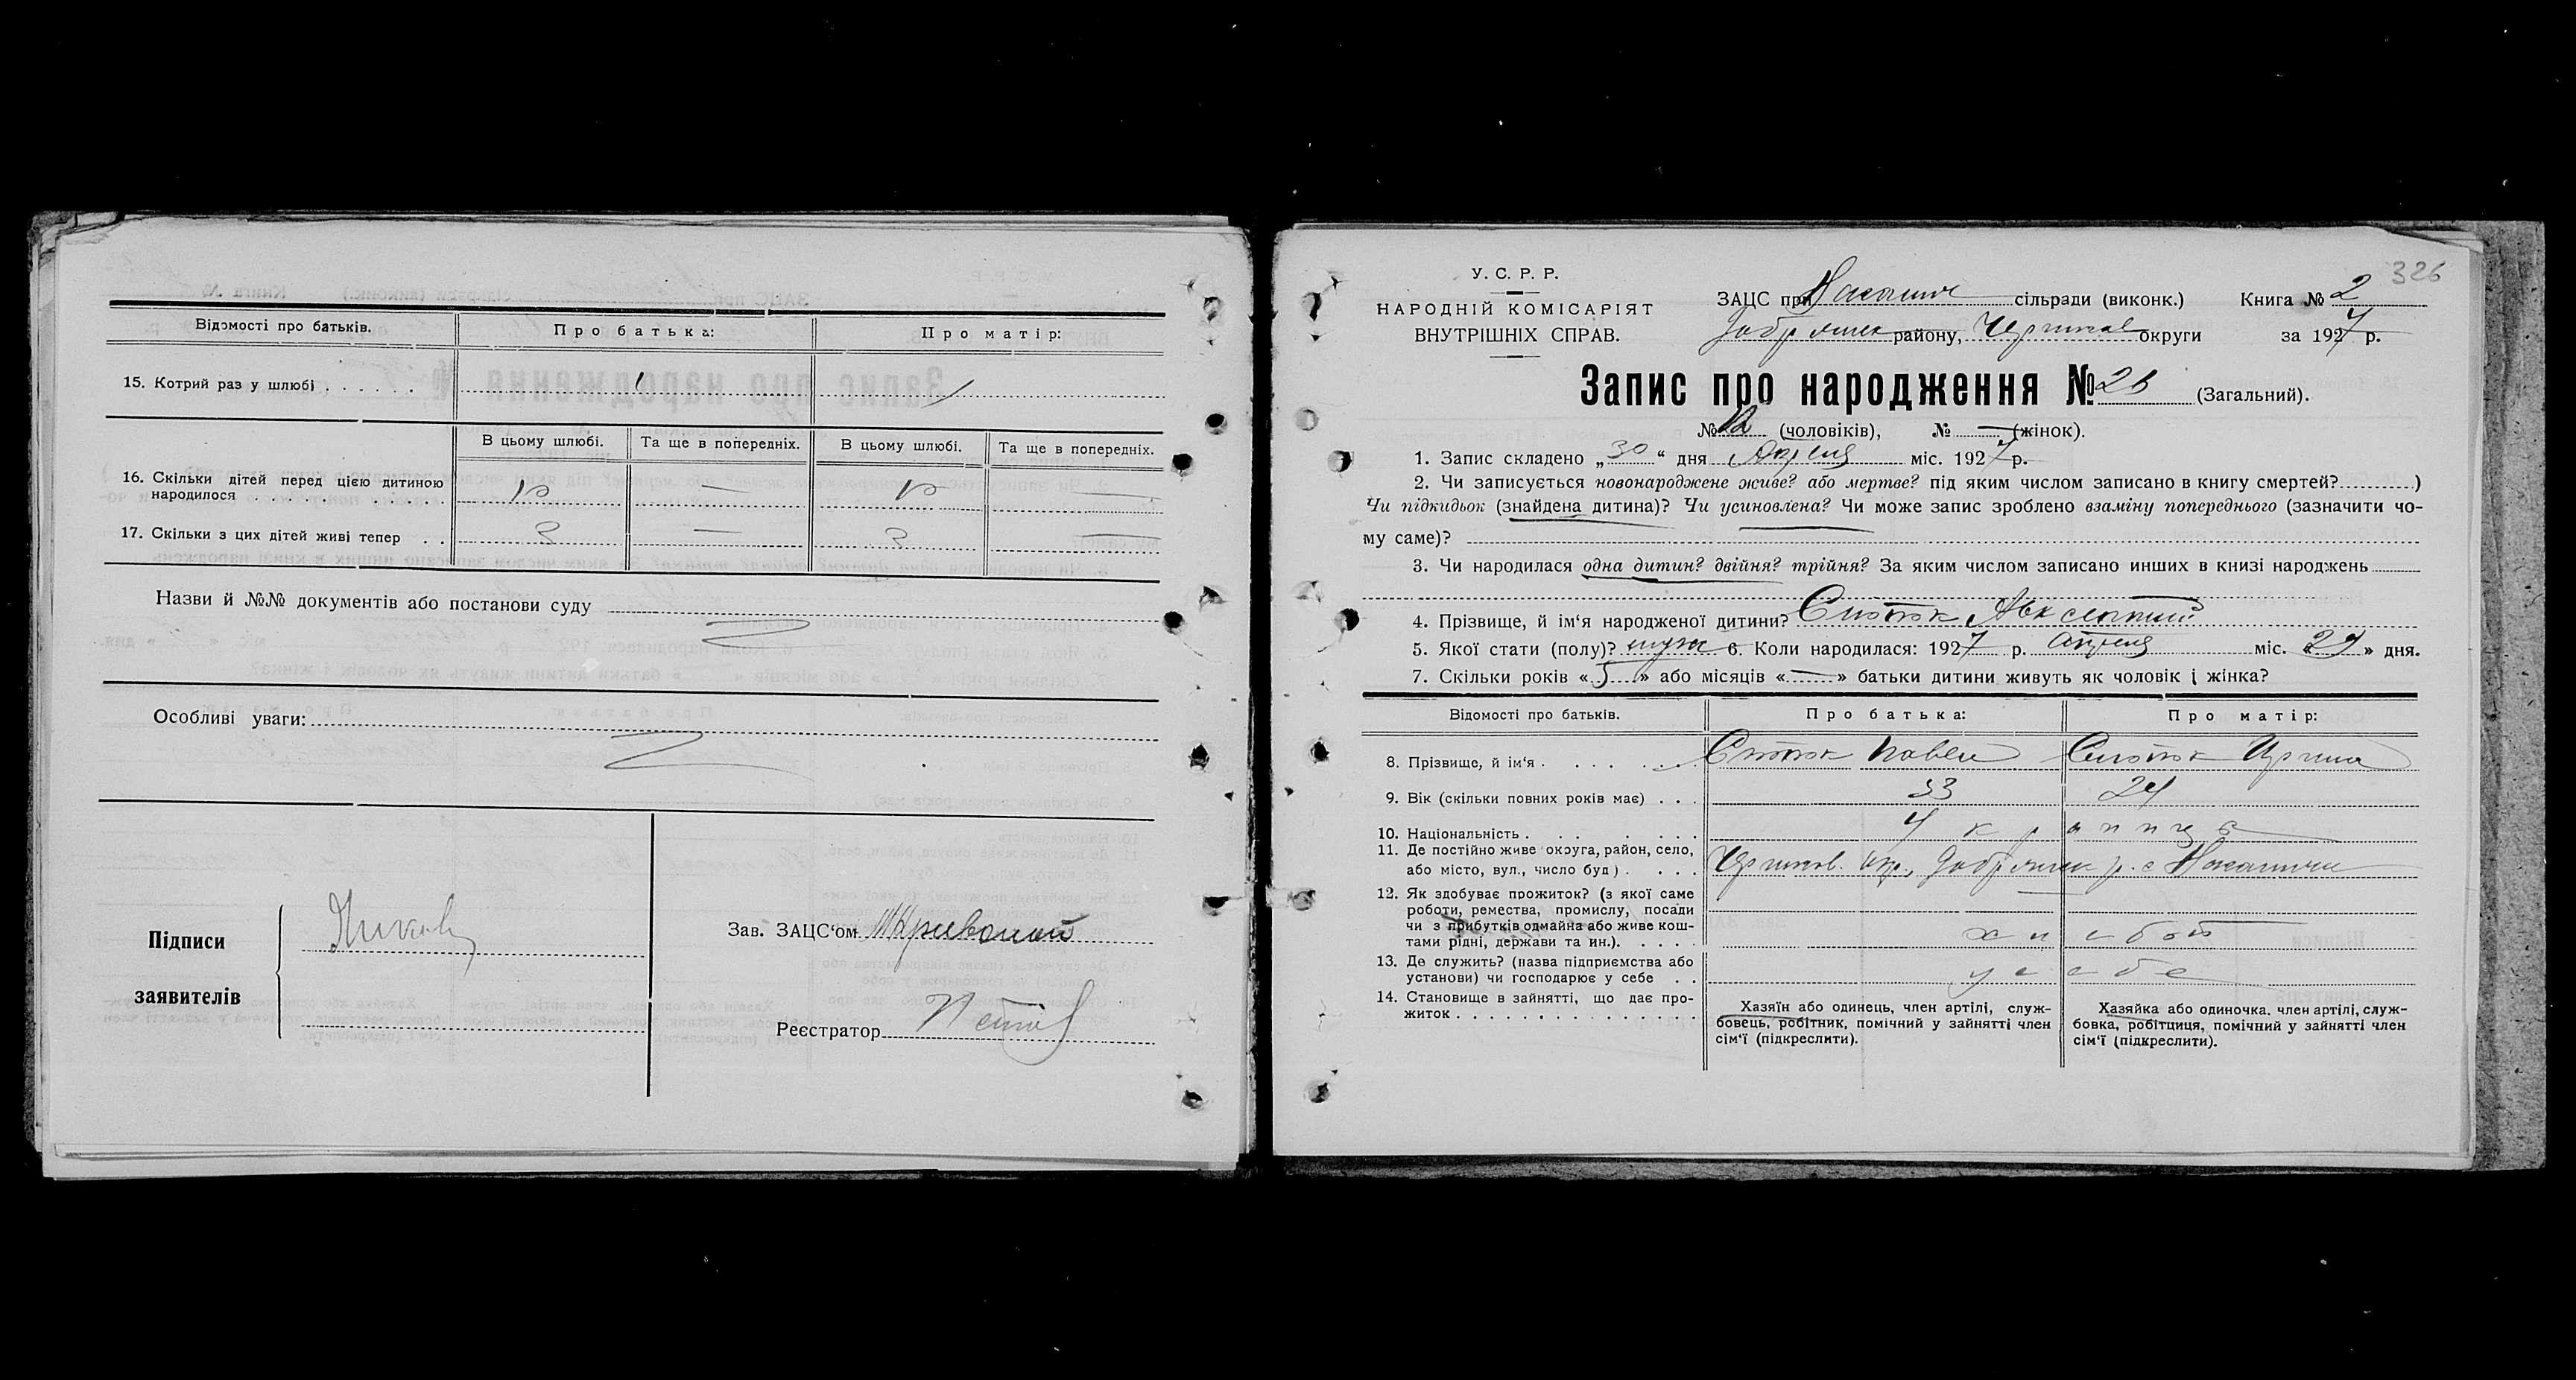 Відомості про батьків. Про батька: Про матір:
15. Котрий раз у шлюбі . . . . . . 1 1
В цьому шлюбі. Та ще в попередніх. В цьому шлюбі. Та ще в попередніх.
16. Скільки дітей перед цією дитиною
народилося . . . . — —
17. Скільки з цих дітей живі тепер . . 3 — 3 —
Назви й №№ документів або постанови суду
Особливі уваги:
Підписи
заявителів
Зав. ЗАЦС‘ом
Реєстратор
326
У. С. Р. Р.
НАРОДНІЙ КОМІСАРІЯТ
ВНУТРІШНІХ СПРАВ.
ЗАЦС при сільради (виконк.) Книга № 2
Добрянск району, Чернигов округи за 1927 р.
Запис про народження № (Загальний).
№ 12 (чоловіків), № — (жінок).
1. Запис складено „30“ дня Апреля міс. 1927 р.
2. Чи записується новонароджене живе? або мертве? під яким числом записано в книгу смертей?.........)
Чи підкидьок (знайдена дитина)? Чи усиновлена? Чи може запис зроблено взаміну попереднього (зазначити чо-
му саме)?
3. Чи народилася одна дитин? двійня? трійня? За яким числом записано инших в книзі народжень
4. Прізвище, й ім‘я народженої дитини? Авксентий
5. Якої стати (полу)? муж 6. Коли народилася: 1927 р. апреля міс. « 29 » дня.
7. Скільки років « 5 » або місяців « — » батьки дитини живуть як чоловік і жінка?
Відомості про батьків. Про батька: Про матір:
8. Прізвище, й ім‘я . . . . . . Павел
9. Вік (скільки повних років має) . . . 33 24
10. Національність . . . . . . . Украинцы
11. Де постійно живе округа, район, село,
або місто, вул., число буд) . . . . Чернигов. окр., Добрянск р. с
12. Як здобуває прожиток? (з якої саме
роботи, ремества, промислу, посади
чи з прибутків одмайна або живе кош-
тами рідні, держави та ин.). . . . . хлебоп
13. Де служить? (назва підприємства або
установи) чи господарює у себе . . у себе
14. Становище в зайнятті, що дає про-
житок . . . . . . . . . . . . . . .
Хазяїн або одинець, член артілі, служ-
бовець, робітник, помічний у зайнятті член
сім‘ї (підкреслити).
Хазяйка або одиночка. член артілі, служ-
бовка, робітциця, помічний у зайнятті член
сім‘ї (підкреслити).